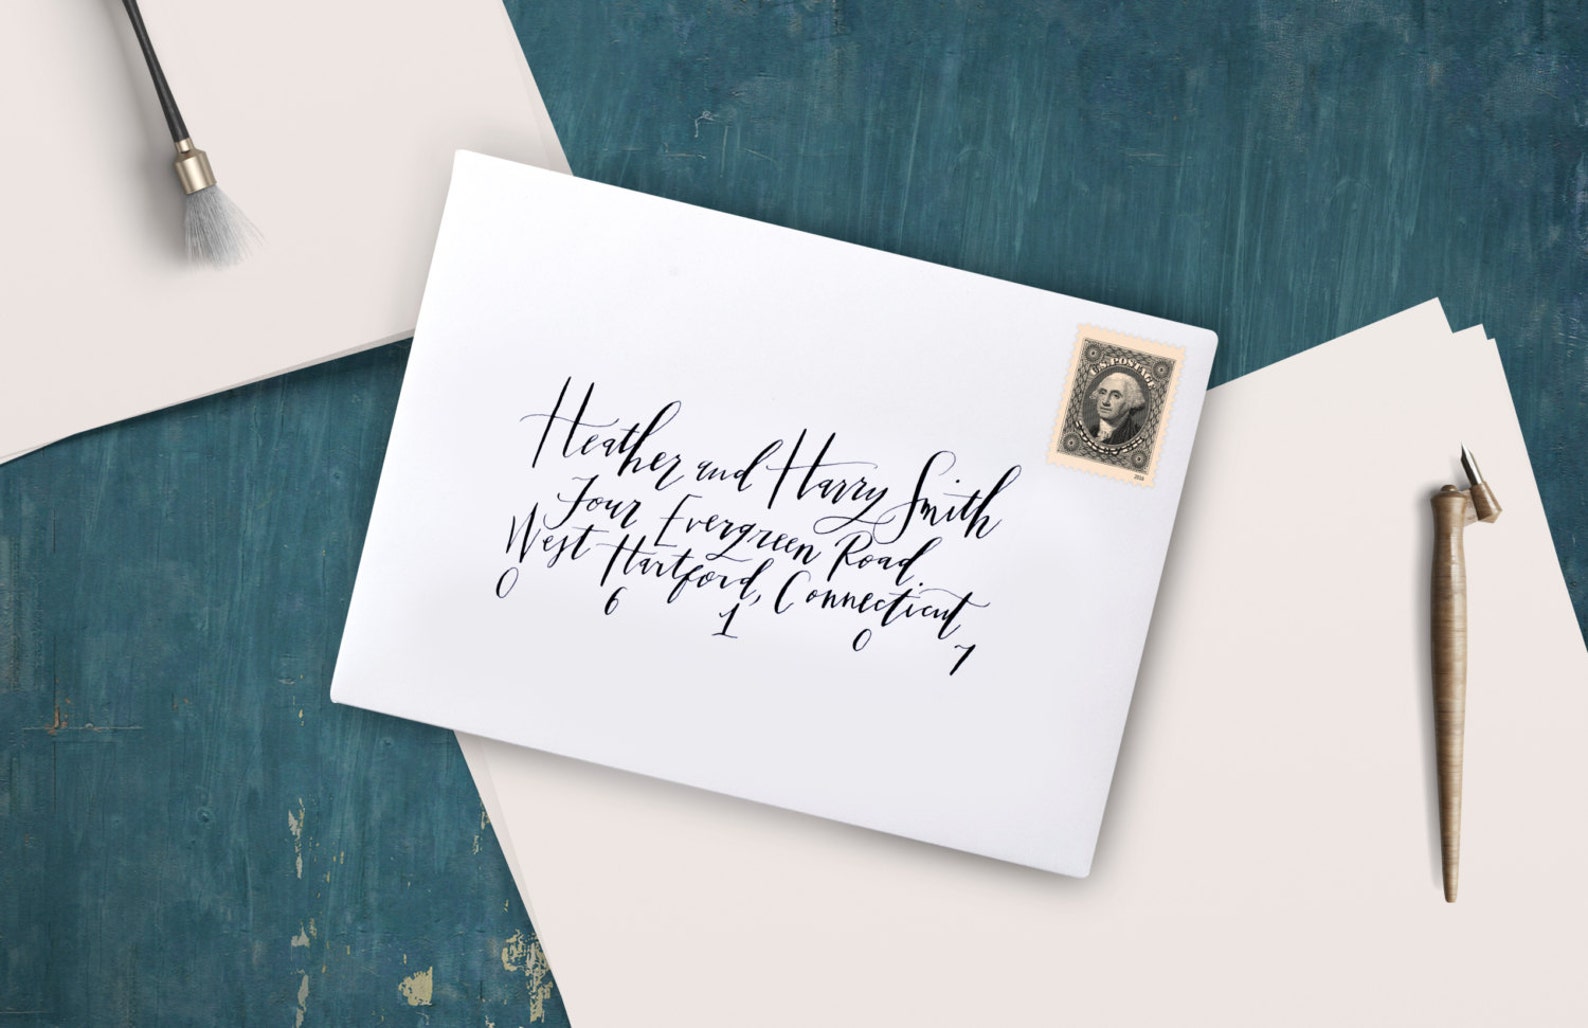 U.S. POSTAGE
Heather and Harry Smith
Four Evergreen Road
West Hartford, Connecticut
0 6 1 0 7